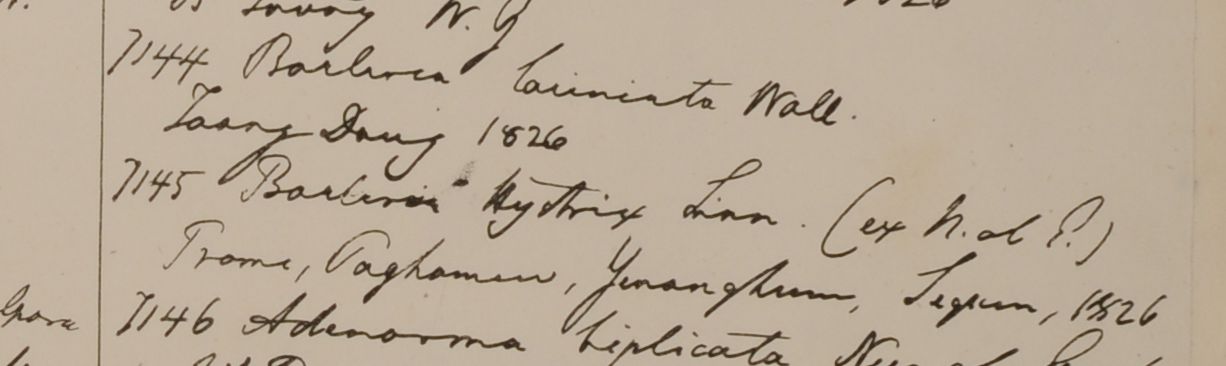 Tavoy W. G
7144 Barleria laciniata Wall.
Taong Doug 1826
7145 Barleria Hystrix Linn. (ex N. ab E.)
Prome, Paghamew, Yenanghum, Segrun, 1826
7146 Adenosma biplicata